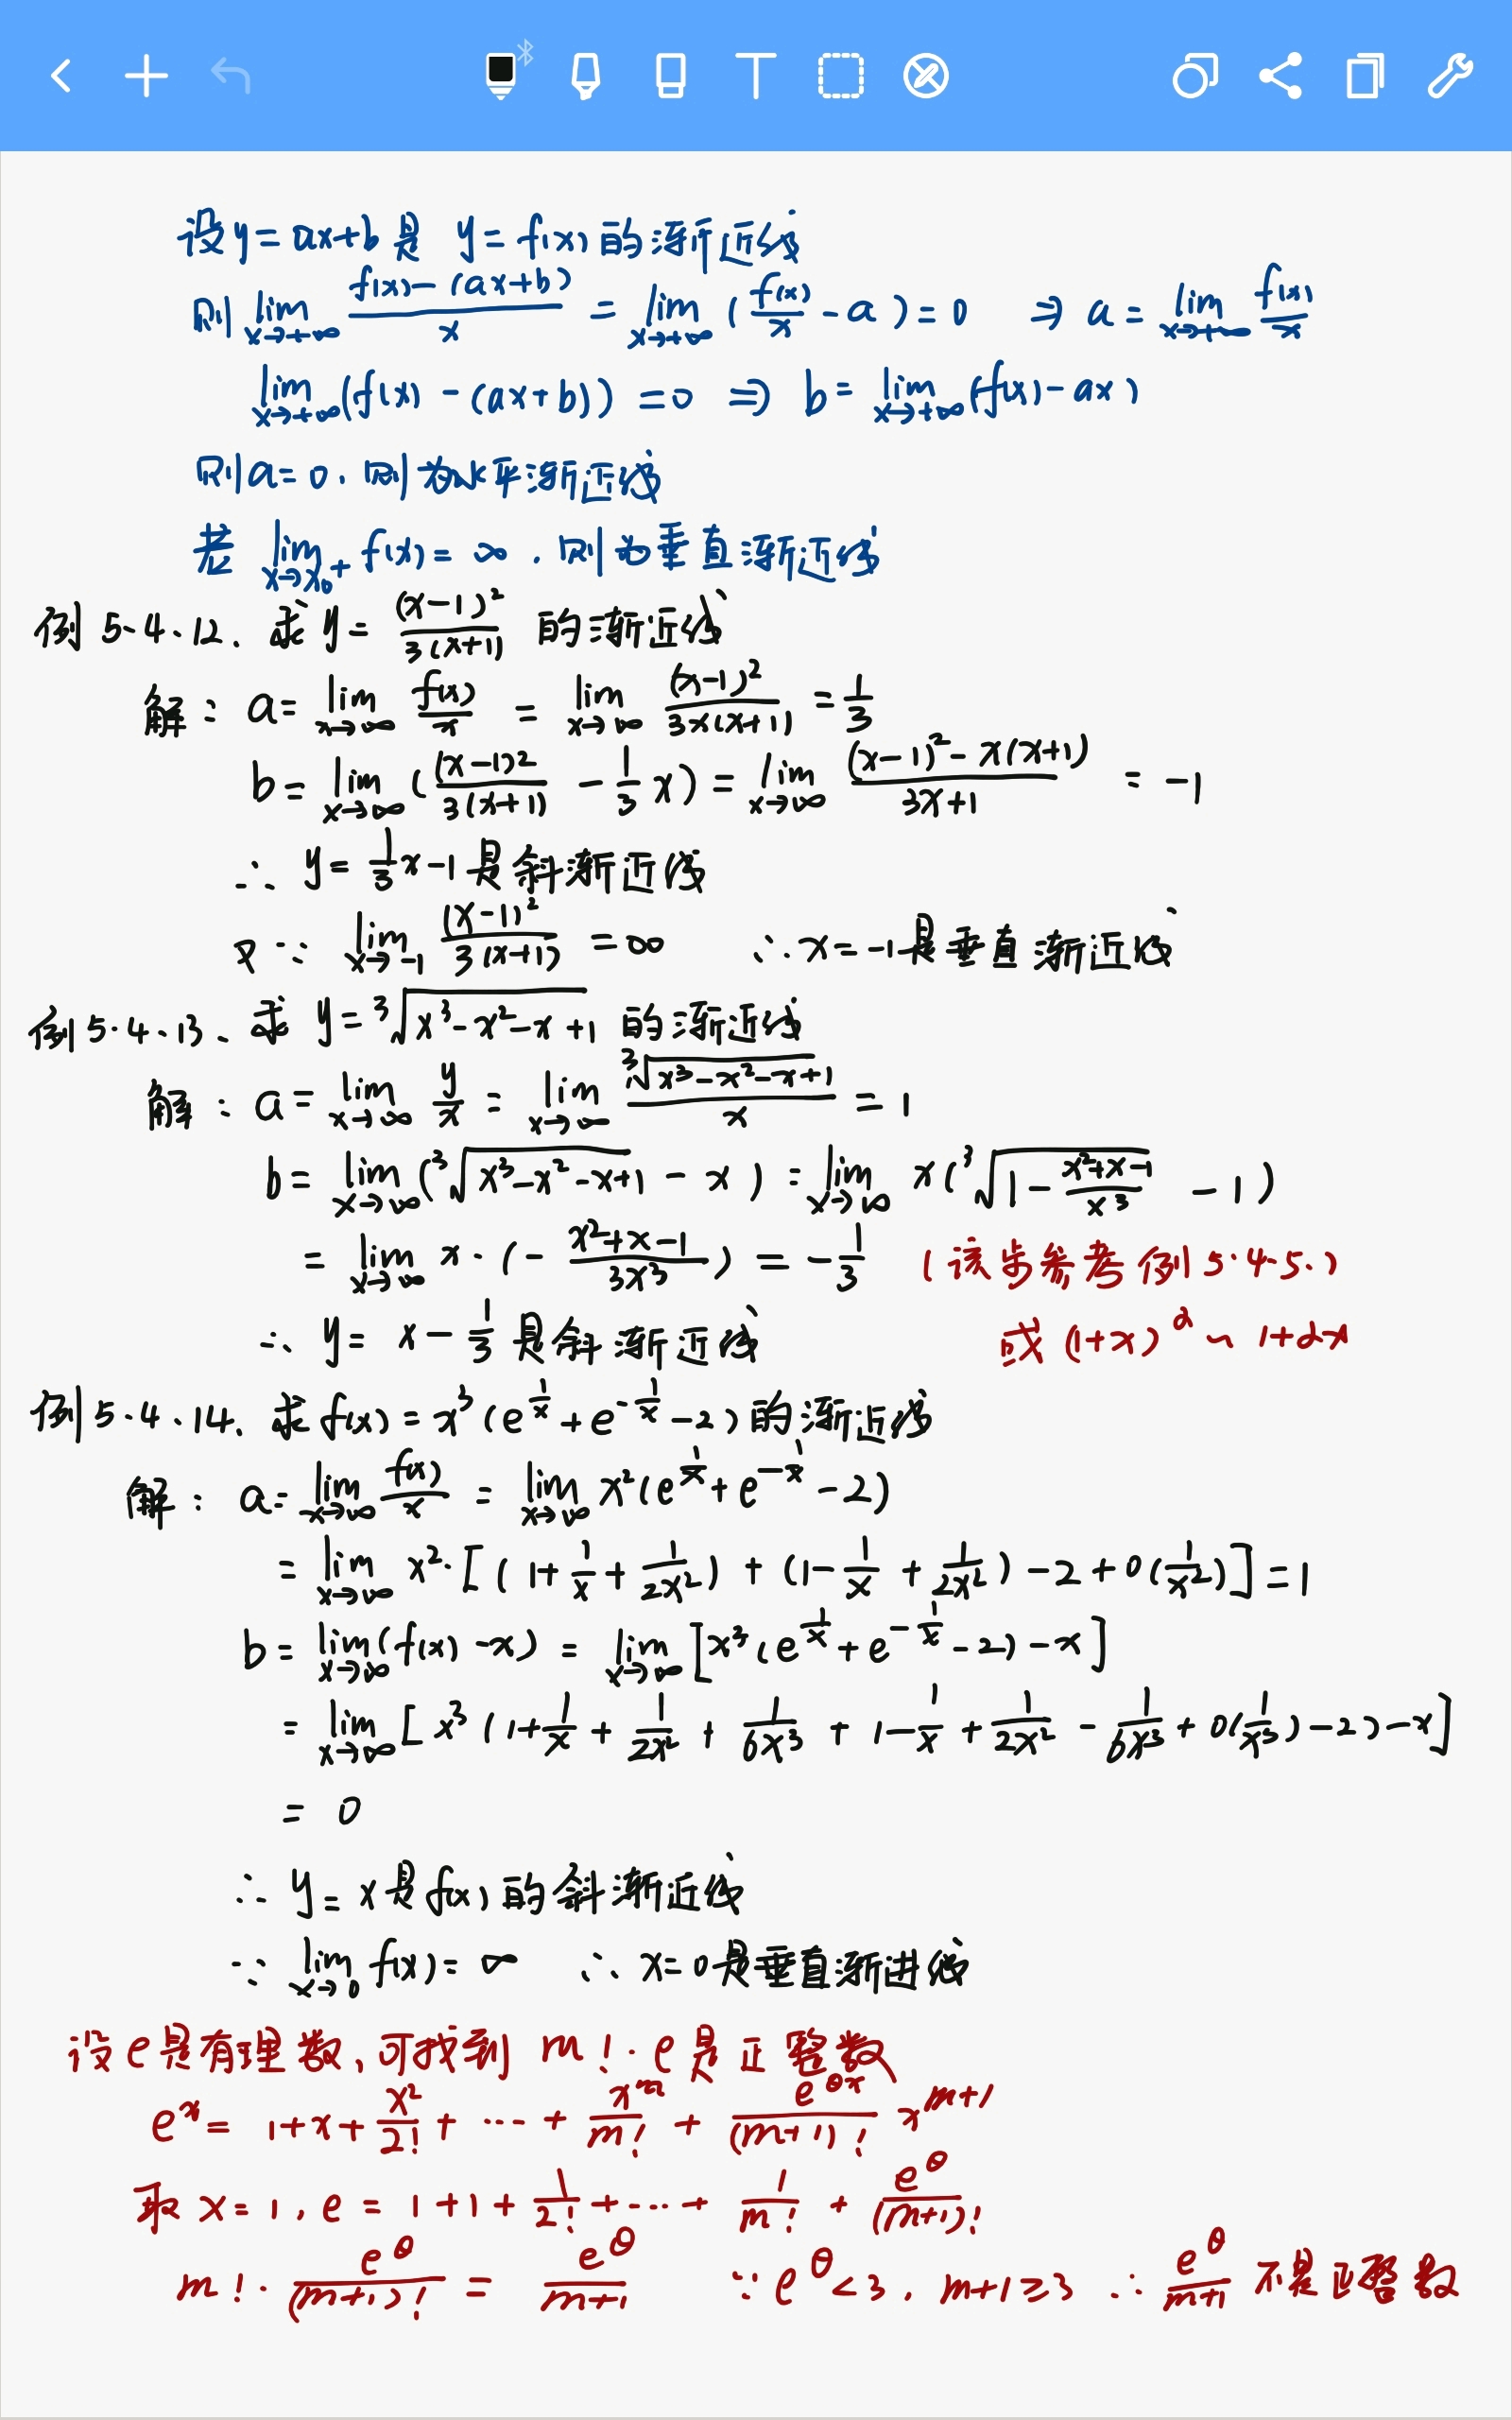 设 y = ax+b 是 y = f(x) 的渐近线
则 lim_{x→+∞} (f(x)-(ax+b))/x = lim_{x→+∞} (f(x)/x - a) = 0 ⇒ a = lim_{x→+∞} f(x)/x
lim_{x→+∞} (f(x) - (ax+b)) = 0 ⇒ b = lim_{x→+∞} (f(x) - ax)
则 a = 0, 则为水平渐近线
若 lim_{x→x₀⁺} f(x) = ∞, 则为垂直渐近线
例 5.4.12. 求 y = (x-1)²/3(x+1) 的渐近线
解: a = lim_{x→∞} f(x)/x = lim_{x→∞} (x-1)²/3x(x+1) = 1/3
b = lim_{x→∞} ((x-1)²/3(x+1) - 1/3 x) = lim_{x→∞} ((x-1)² - x(x+1))/3x+1 = -1
∴ y = 1/3 x - 1 是斜渐近线
又 ∵ lim_{x→-1} (x-1)²/3(x+1) = ∞ ∴ x = -1 是垂直渐近线
例 5.4.13、求 y = ³√(x³-x²-x+1) 的渐近线
解: a = lim_{x→∞} y/x = lim_{x→∞} ³√(x³-x²-x+1)/x = 1
b = lim_{x→∞} (³√(x³-x²-x+1) - x) = lim_{x→∞} x(³√(1 - (x²+x-1)/x³) - 1)
= lim_{x→∞} x·(- (x²+x-1)/3x³) = -1/3 (该步参考例 5.4.5.)
∴ y = x - 1/3 是斜渐近线 或 (1+x)^α ~ 1+αx
例 5.4.14. 求 f(x) = x³(e^{1/x} + e^{-1/x} - 2) 的渐近线
解: a = lim_{x→∞} f(x)/x = lim_{x→∞} x²(e^{1/x} + e^{-1/x} - 2)
= lim_{x→∞} x²·[(1 + 1/x + 1/2x²) + (1 - 1/x + 1/2x²) - 2 + o(1/x²)] = 1
b = lim_{x→∞} (f(x) - x) = lim_{x→∞} [x³(e^{1/x} + e^{-1/x} - 2) - x]
= lim_{x→∞} [x³(1 + 1/x + 1/2x² + 1/6x³ + 1 - 1/x + 1/2x² - 1/6x³ + o(1/x³) - 2) - x]
= 0
∴ y = x 是 f(x) 的斜渐近线
∵ lim_{x→0} f(x) = ∞ ∴ x = 0 是垂直渐进线
设 e 是有理数, 可找到 m!·e 是正整数
e^x = 1 + x + x²/2! + ... + x^m/m! + e^{θx}/(m+1)! x^{m+1}
取 x = 1, e = 1 + 1 + 1/2! + ... + 1/m! + e^θ/(m+1)!
m!·e^θ/(m+1)! = e^θ/m+1 ∵ e^θ < 3, m+1 ≥ 3 ∴ e^θ/m+1 不是正整数